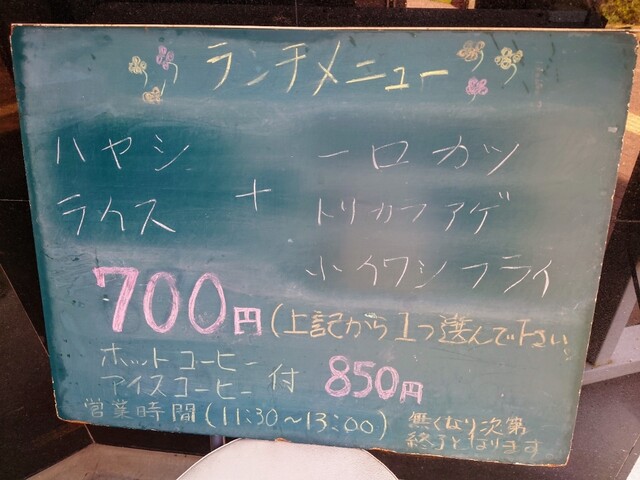 ランチメニュー
ハヤシ
ライス
+
一口カツ
トリカラアゲ
小イワシフライ
700円(上記から1つ選んで下さい)
ホットコーヒー
アイスコーヒー
付 850円
営業時間(11:30~13:00)
無くなり次第
終了となります